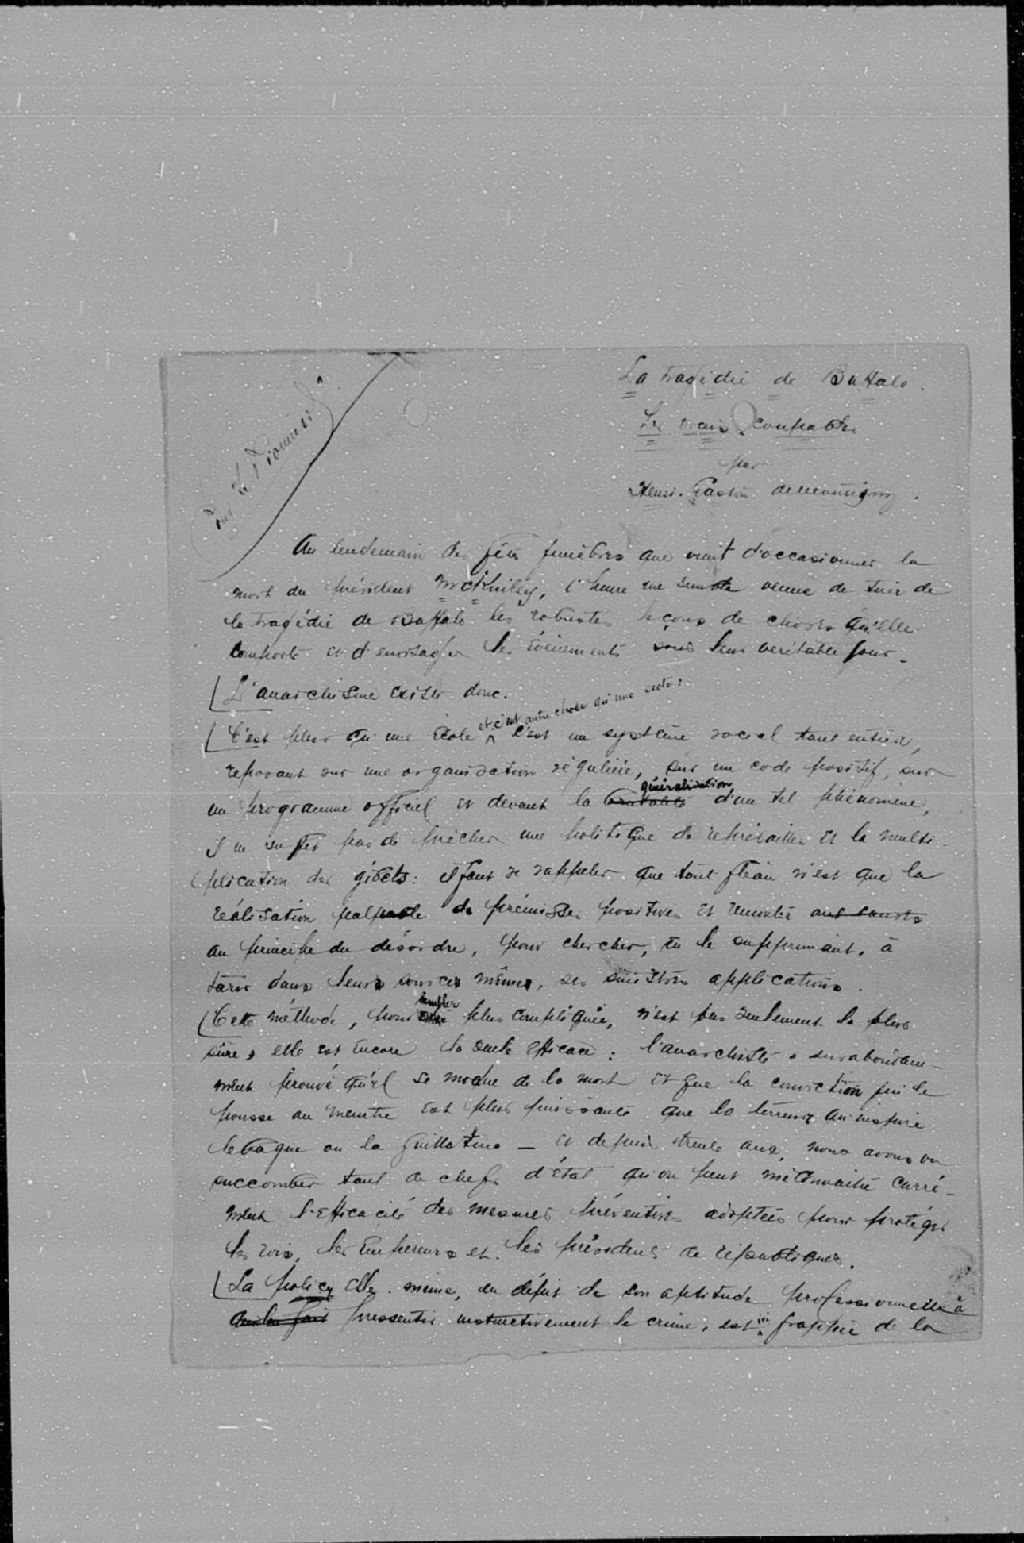 La tragédie de Buffalo.
Les vrais coupables
par
Henri-Gaston de Montigny.
Pour Le Pionnier
Au lendemain des fêtes funèbres que vient d'occasionner la
mort du président McKinley, l'heure me semble venue de tirer de
la tragédie de Buffalo les robustes leçons de choses qu'elle
comporte et d'envisager les événements sous leur véritable jour.
L'anarchisme existe donc.
C'est plus qu'une école et c'est autre chose qu'une secte: c'est un système social tout entier,
reposant sur une organisation régulière, sur un code positif, sur
un programme officiel et devant la généralisation d'un tel phénomène,
il ne suffit pas de prêcher une politique de représailles et la multi-
plication des gibets: il faut se rappeler que tout fléau n'est que la
réalisation palpable de prémisses positives et remonter aux sources
au principe du désordre, pour chercher, en le supprimant, à
tarir dans leurs sources mêmes, ses sinistres applications.
Cette méthode, pour sembler plus compliquée, n'est pas seulement la plus
sûre, elle est encore la seule efficace: l'anarchiste a surabondam-
ment prouvé qu'il se moque de la mort et que la conviction qui le
pousse au meurtre est plus puissante que la terreur qu'inspire
le bagne ou la guillotine — et depuis trente ans, nous avons vu
succomber tant de chefs d'état qu'on peut méconnaître carré-
ment l'efficacité des mesures préventives adoptées pour protéger
les rois, les Empereurs et les présidents de républiques.
La police elle-même, en dépit de son aptitude professionnelle à
pressentir instinctivement le crime, est frappée de la